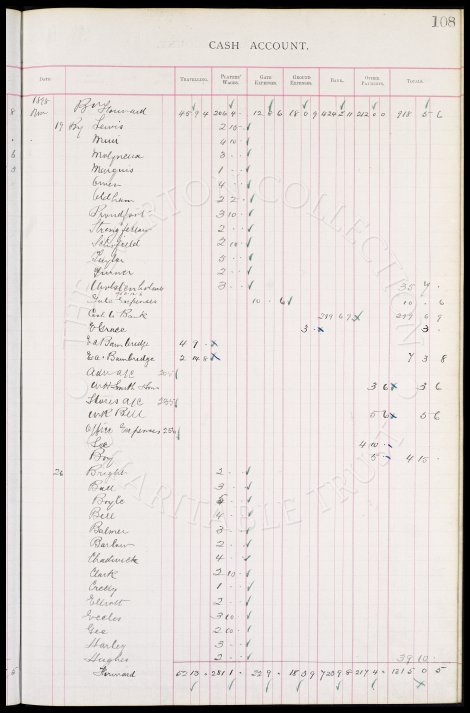 108
CASH ACCOUNT.
DATE TRAVELLING. PLAYERS' WAGES. GATE EXPENSES. GROUND EXPENSES. BANK. OTHER PAYMENTS. TOTALS.
1898
Nov By Forward 45 9 4 206 4 12 6 18 0 9 424 2 11 212 0 0 918 5 6
19 By Lewis 2 10
Muir 4 10
Molyneux 3
Marquis 1
Owen 4
Oldham 2 2
Proudfoot 3 10
2
Schofield 2 10
Taylor 3
Turner 2
Wolstenholmes 3 35 9
Gate Expenses 10 6 10 6
Cash to Bank 299 6 9 299 6 9
E Grace 3 3
E A Bainbridge 4 9
E A Bainbridge 2 14 8 7 3 8
Adv a/c
W H Smith & Son 3 6 3 6
Stores a/c
W R Bell 5 6 5 6
Office Expenses
4 10
Boy 5 4 15
26 Bright 2
Ball 3
Boyle
Bell 4
Balmer 3
Barlow 2
Chadwick 4
Clark 2 10
Crelly 1
Elliott 2
Eccles 3 10
Gee 2 10
Hartley 3
Hughes 2 39 10
Forward 52 13 281 1 22 9 18 3 9 723 9 8 217 4 1315 0 5
THE EVERTON COLLECTION
CHARITABLE TRUST